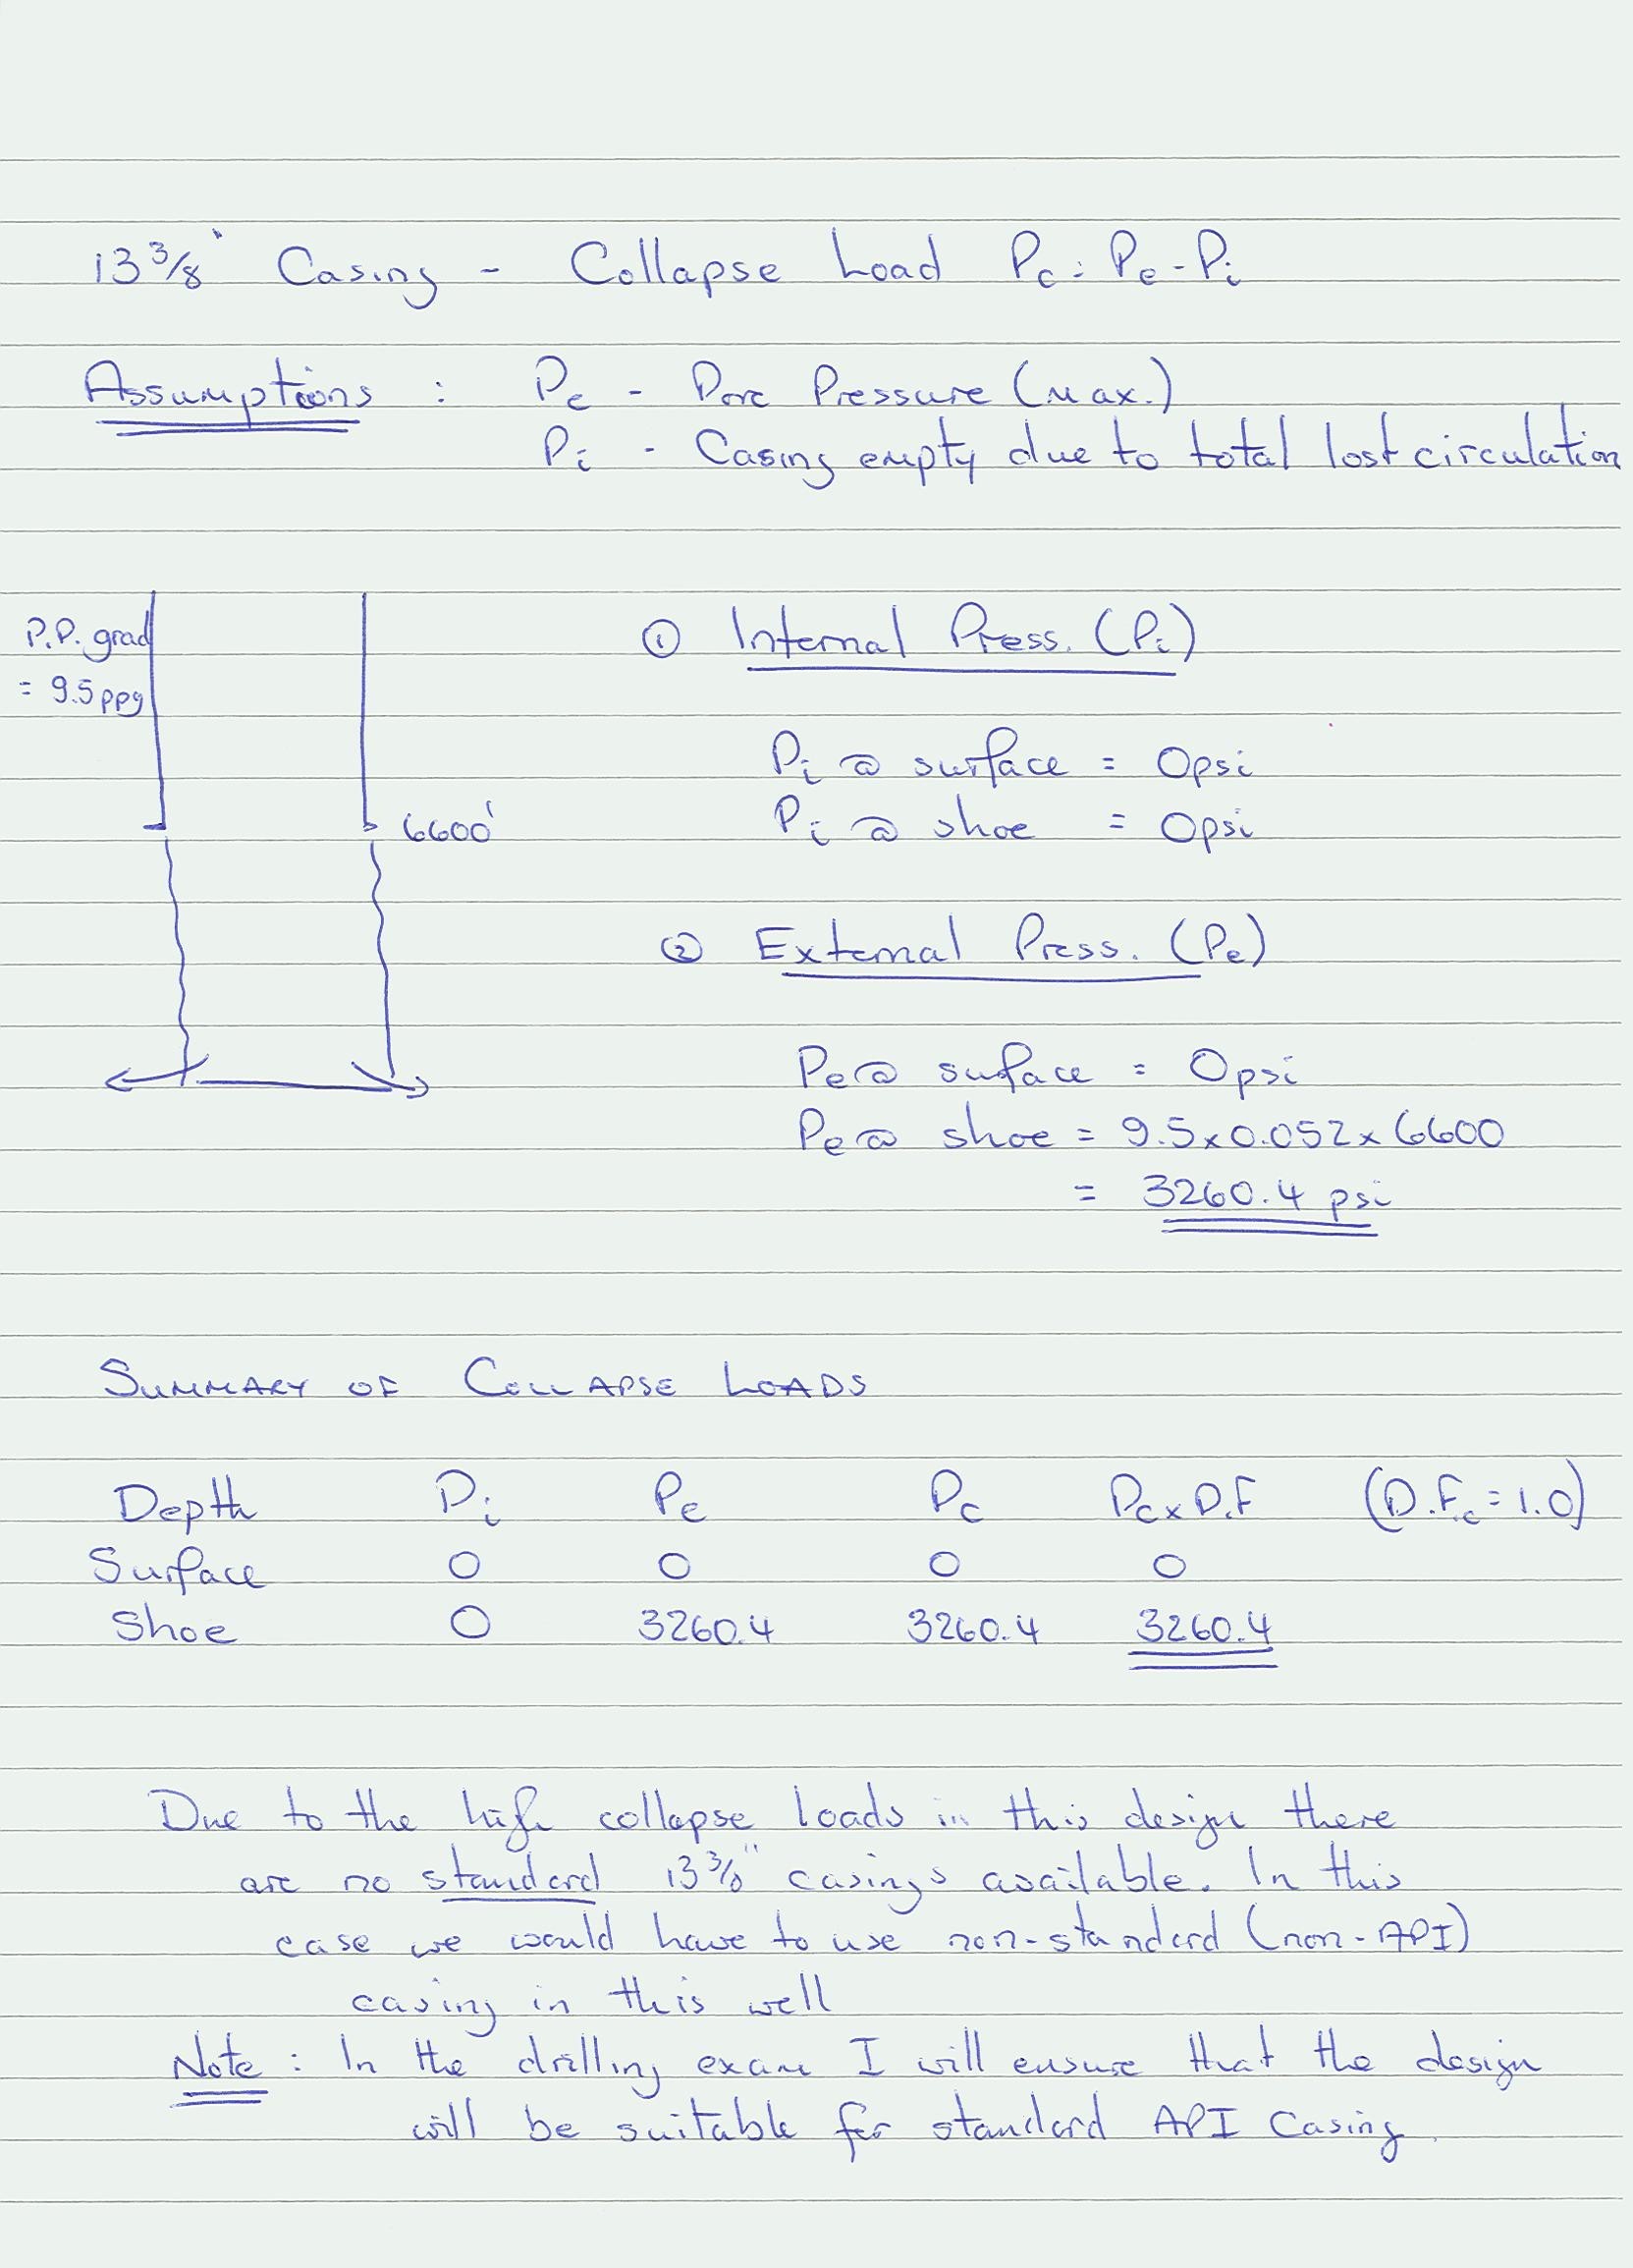 13 3/8" Casing - Collapse Load Pc = Pe - Pi
Assumptions : Pe - Pore Pressure (Max.)
Pi - Casing empty due to total lost circulation
P.P. grad
= 9.5 ppg
6600'
① Internal Press. (Pi)
Pi @ surface = 0psi
Pi @ shoe = 0psi
② External Press. (Pe)
Pe @ surface = 0psi
Pe @ shoe = 9.5 x 0.052 x 6600
= 3260.4 psi
SUMMARY OF COLLAPSE LOADS
Depth Pi Pe Pc Pc x D.F (D.Fc = 1.0)
Surface 0 0 0 0
Shoe 0 3260.4 3260.4 3260.4
Due to the high collapse loads in this design there
are no standard 13 3/8" casings available. In this
case we would have to use non-standard (non-API)
casing in this well
Note : In the drilling exam I will ensure that the design
will be suitable for standard API Casing.